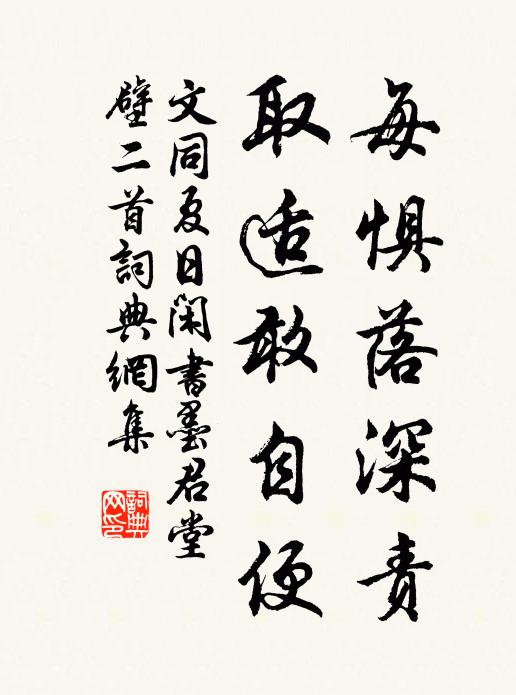 每惧落深责
取适敢自便
文同夏日闲书墨君堂
壁二首词典網集
詞典
网印